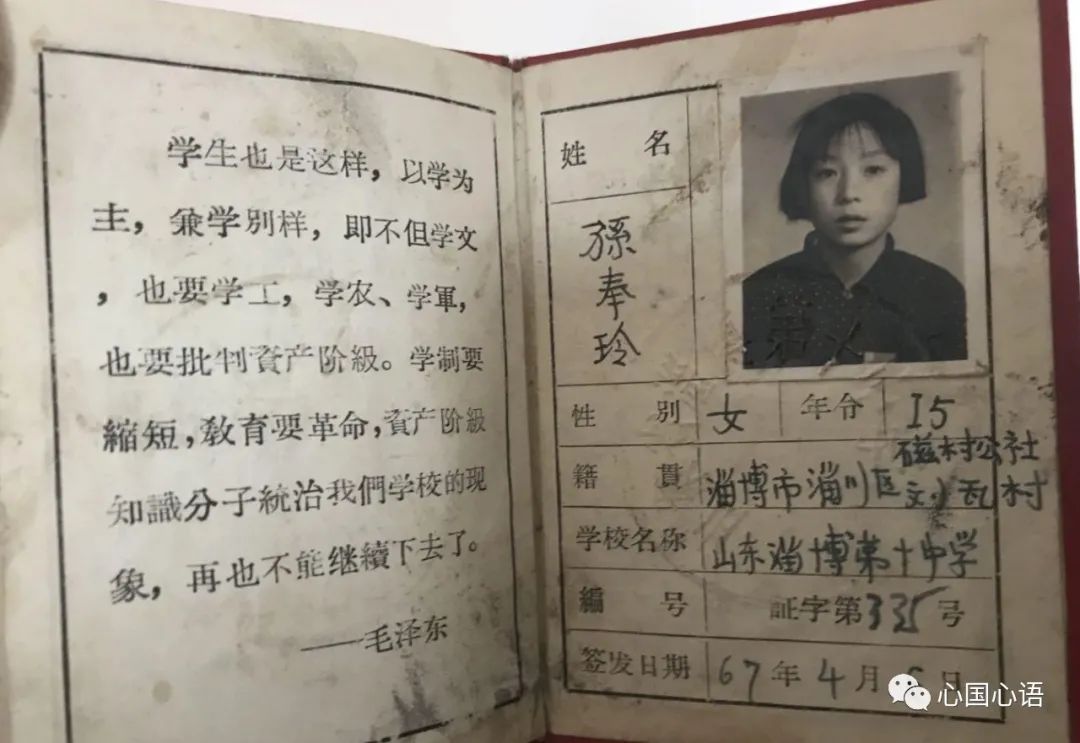 学生也是这样，以学为
主，兼学别样，即不但学文
，也要学工，学农、学軍，
也要批判資产阶級。学制要
縮短，敎育要革命，資产阶級
知識分子統治我們学校的现
象，再也不能继續下去了。
——毛泽东
姓 名
孫奉玲
性 别 女 年令 15
籍 貫 淄博市淄川区磁村公社
瓦村
学校名称 山东淄博第十中学
編 号 証字第335号
签发日期 67年4月 日
心国心语